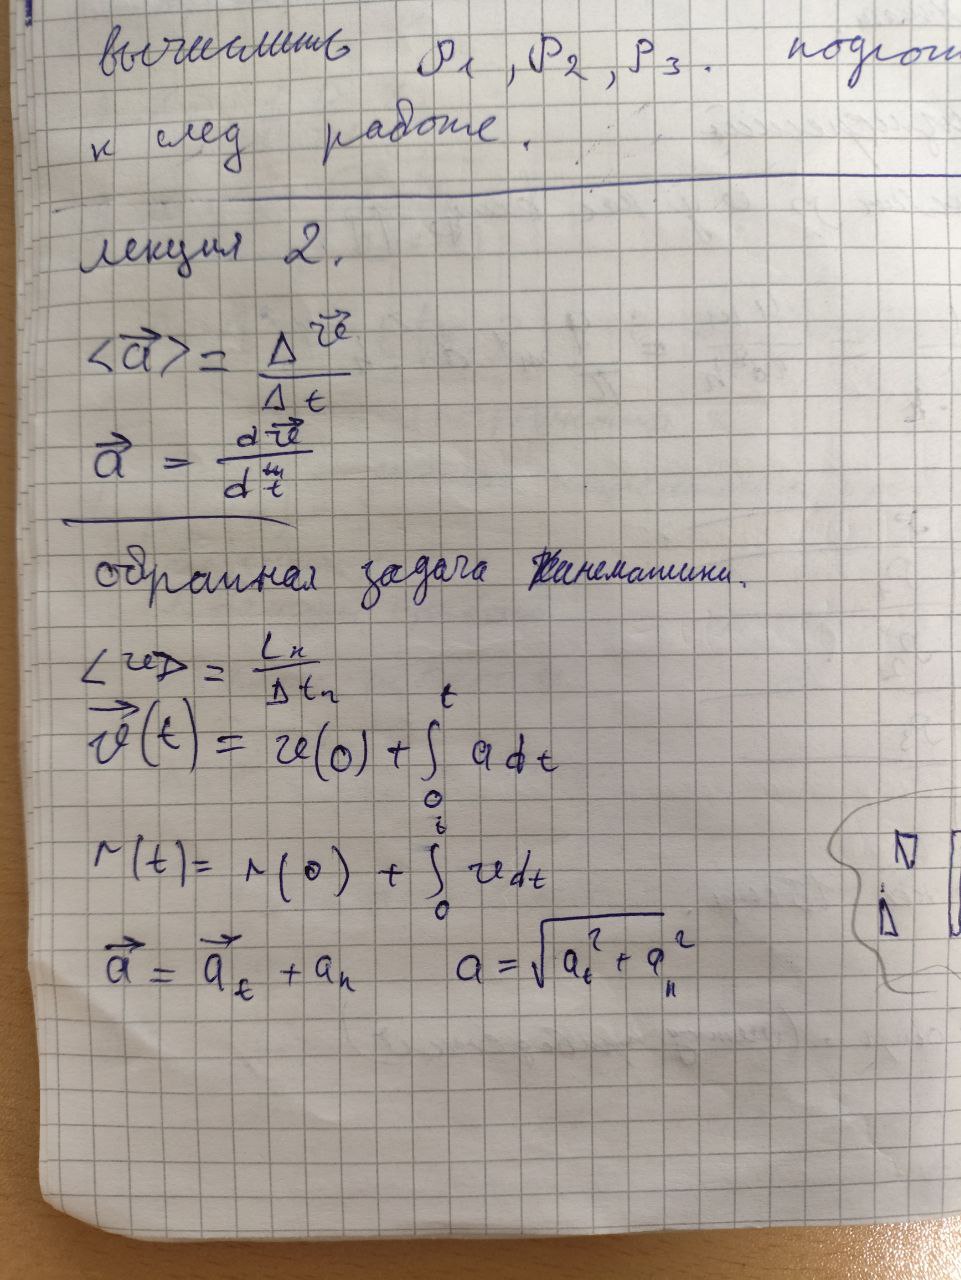 вычислить ρ1, ρ2, ρ3. подгот
к след работе.
лекция 2.
<a⃗> = Δv⃗ / Δt
a⃗ = dv⃗ / dt
обратная задача кинематики.
<v> = Ln / Δtn
v⃗(t) = v(0) + ∫₀ᵗ a dt
r(t) = r(0) + ∫₀ᵗ v dt
a⃗ = a⃗t + an a = √(at² + an²)